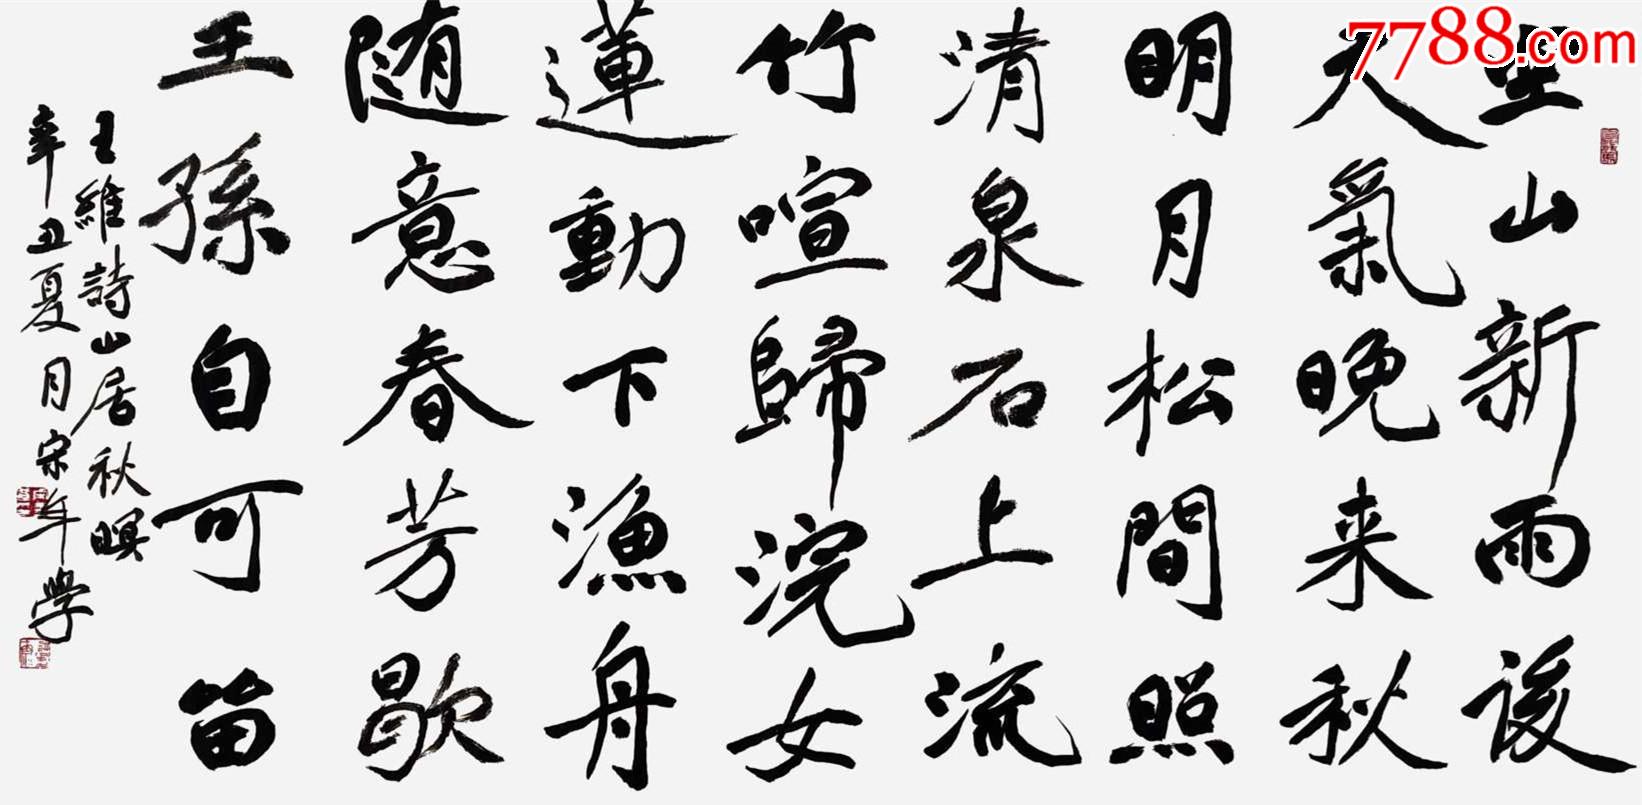 7788.com
空山新雨後
天氣晚来秋
明月松間照
清泉石上流
竹喧歸浣女
蓮動下漁舟
随意春芳歇
王孫自可留
王維詩山居秋暝
辛丑夏月宋年學